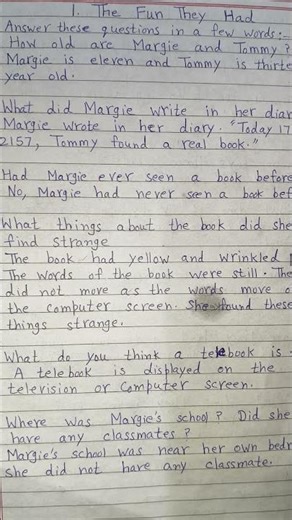 1. The Fun They Had
Answer these questions in a few words:-
How old are Margie and Tommy?
Margie is eleven and Tommy is thirte
year old.
What did Margie write in her diar
Margie wrote in her diary. "Today 17
2157, Tommy found a real book."
Had Margie ever seen a book before
No, Margie had never seen a book bef
What things about the book did she
find strange
The book had yellow and wrinkled p
The words of the book were still. The
did not move as the words move o
the computer screen. She found these
things strange.
What do you think a telebook is.
A telebook is displayed on the
television or computer screen.
Where was Margie's school? Did she
have any classmates?
Margie's school was near her own bedr
she did not have any classmate.